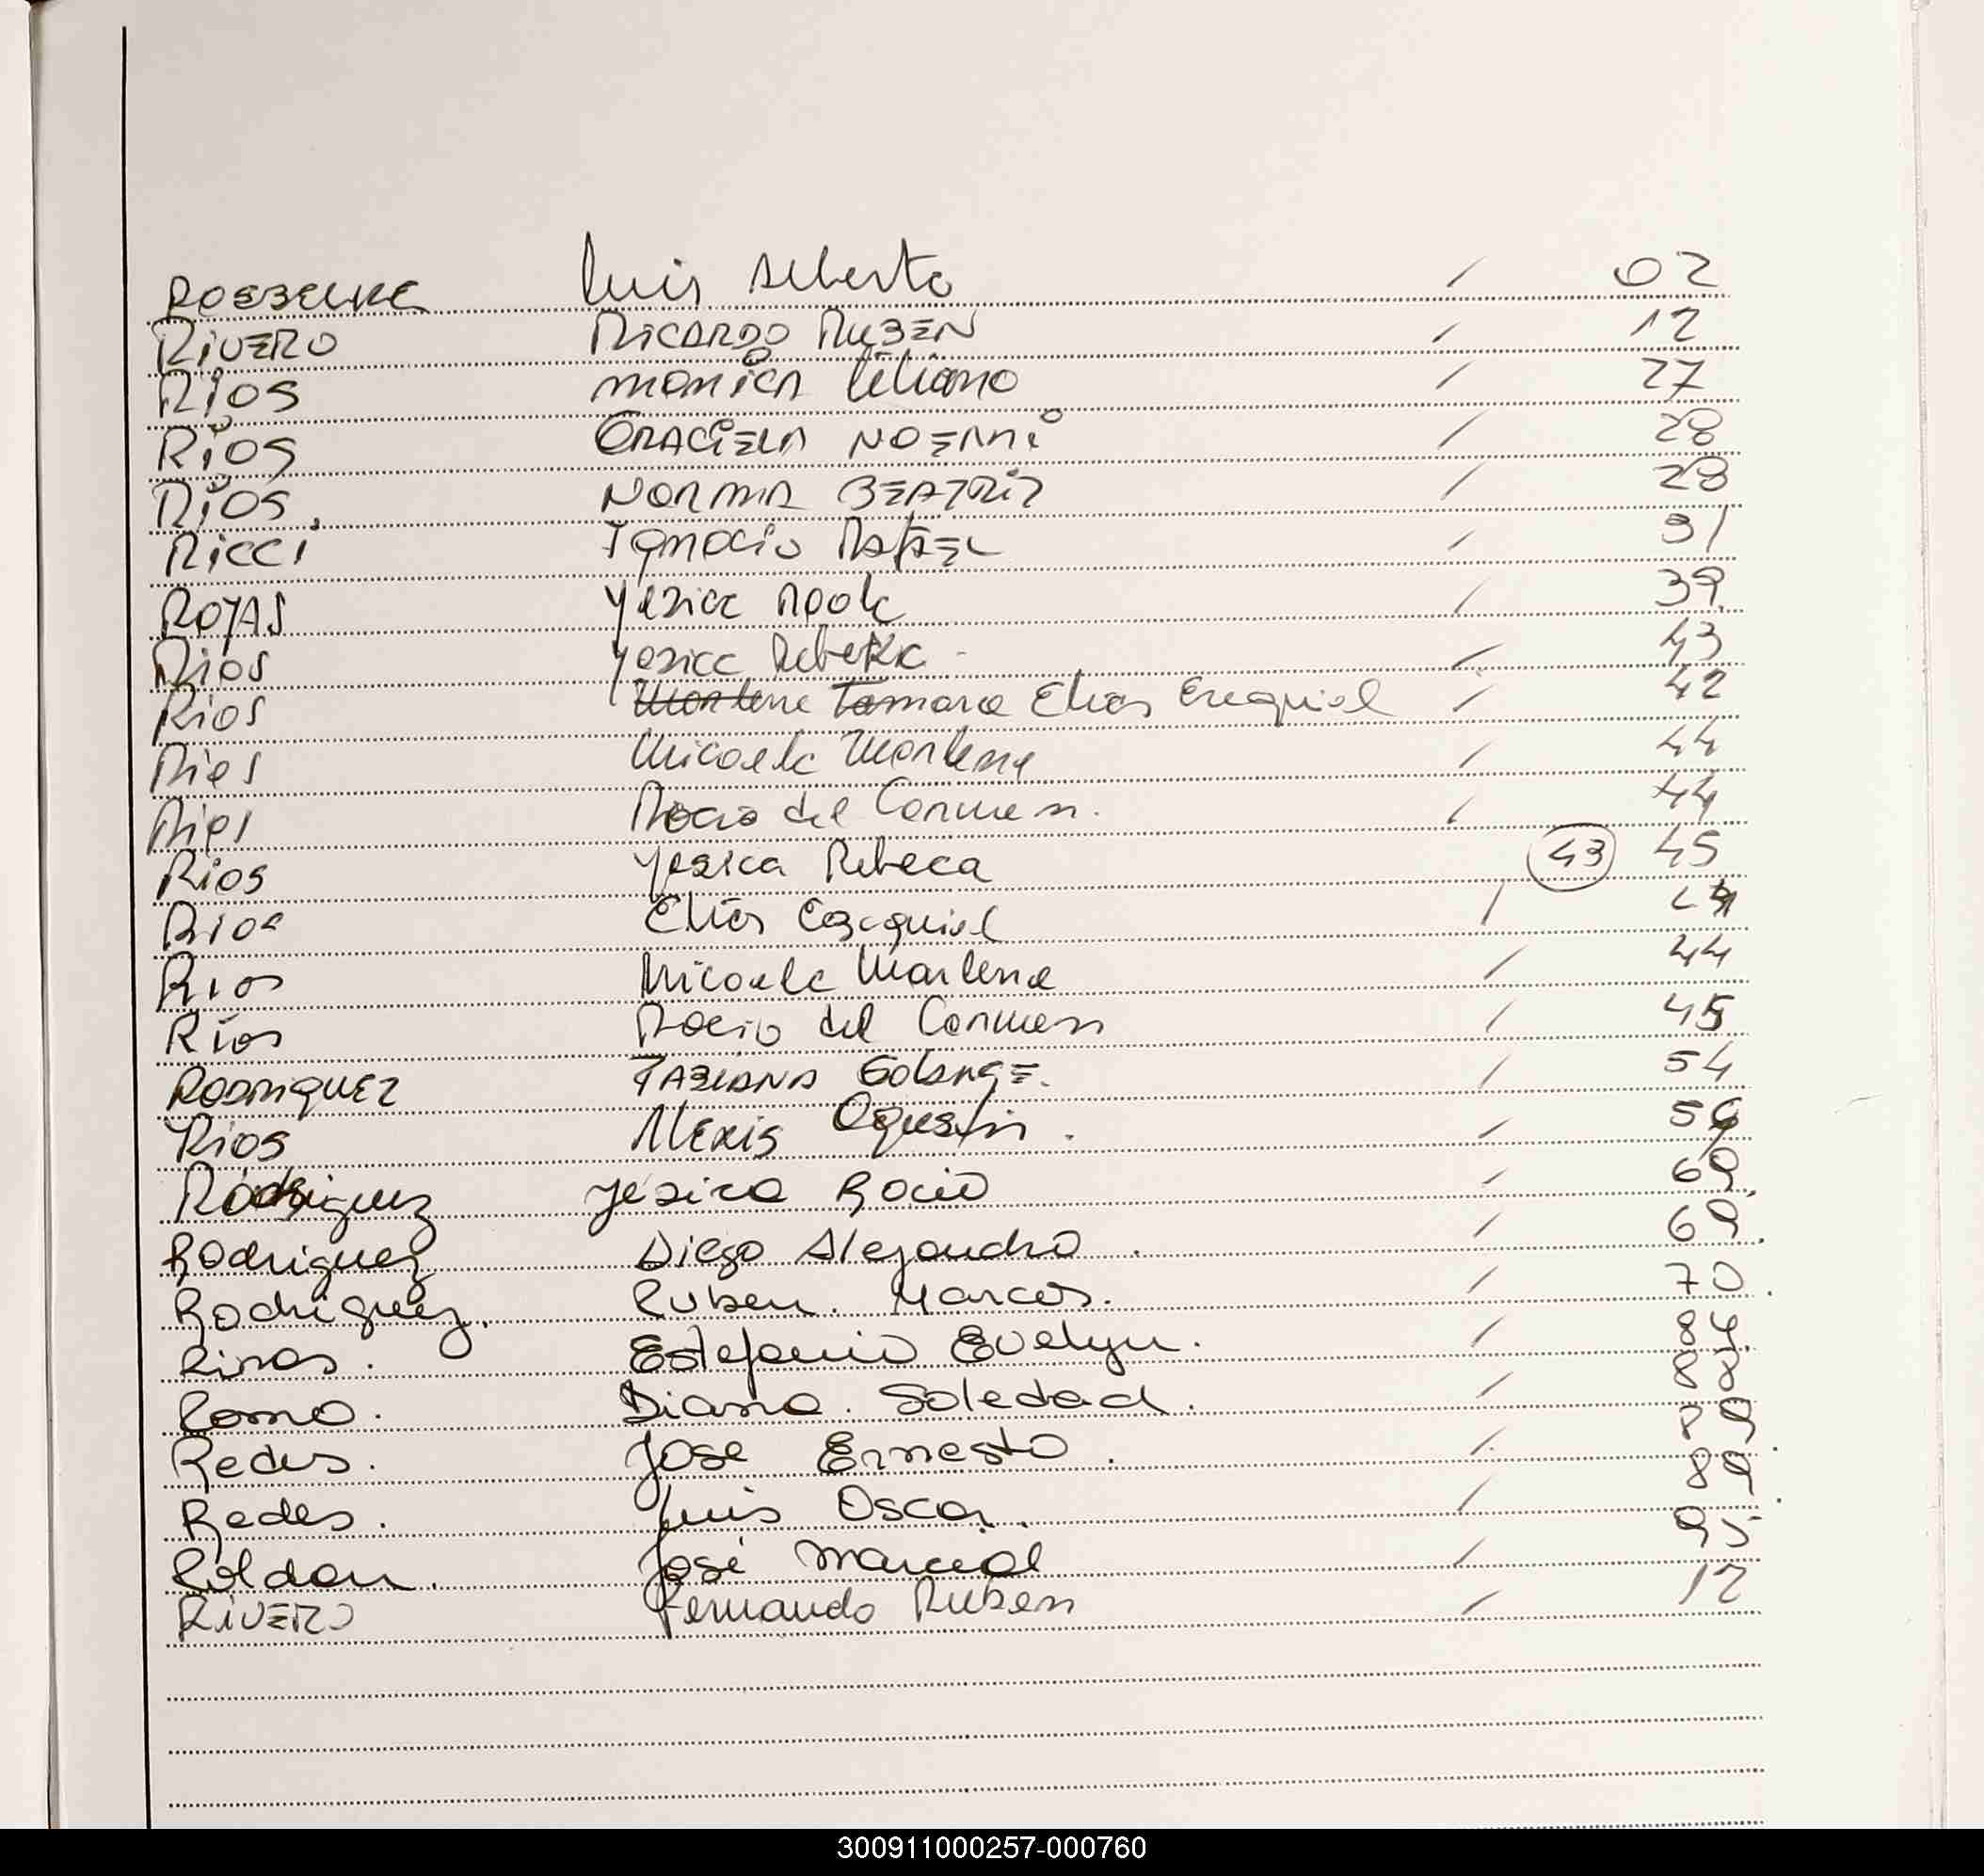 Luis Alberto / 02
RIVERO RICARDO RUBEN / 12
RIOS MONICA Liliana / 27
RIOS GRACIELA NOEMI / 28
RIOS NORMA BEATRIZ / 28
RICCI Ignacio RAFAEL / 31
ROJAS Yesica Paola / 39
RIOS Yesica Rebeka / 43
Rios Marlene Tamara Elias Ezequiel / 42
Rios Micaela Marlene / 44
Rios Rocio del Carmen. / 44
Rios Yesica Rebeca 43 45
Rios Elias Ezequiel /
Rios Micaela Marlene / 44
Rios Rocio del Carmen / 45
RODRIGUEZ FABIANA Solange. / 54
Rios Alexis Agustin. /
Rodriguez Yesica Rocio / 69.
Rodriguez Diego Alejandro. / 69.
Rodriguez. Ruben. Marcos. / 70.
Rivas. Estefania Evelyn. / 84.
Romo. Diana. Soledad. / 88
Redes. Jose Ernesto. / 89.
Redes. Luis Oscar. / 89.
Roldan. José Marcial / 95
RIVERO Fernando Ruben / 12
300911000257-000760